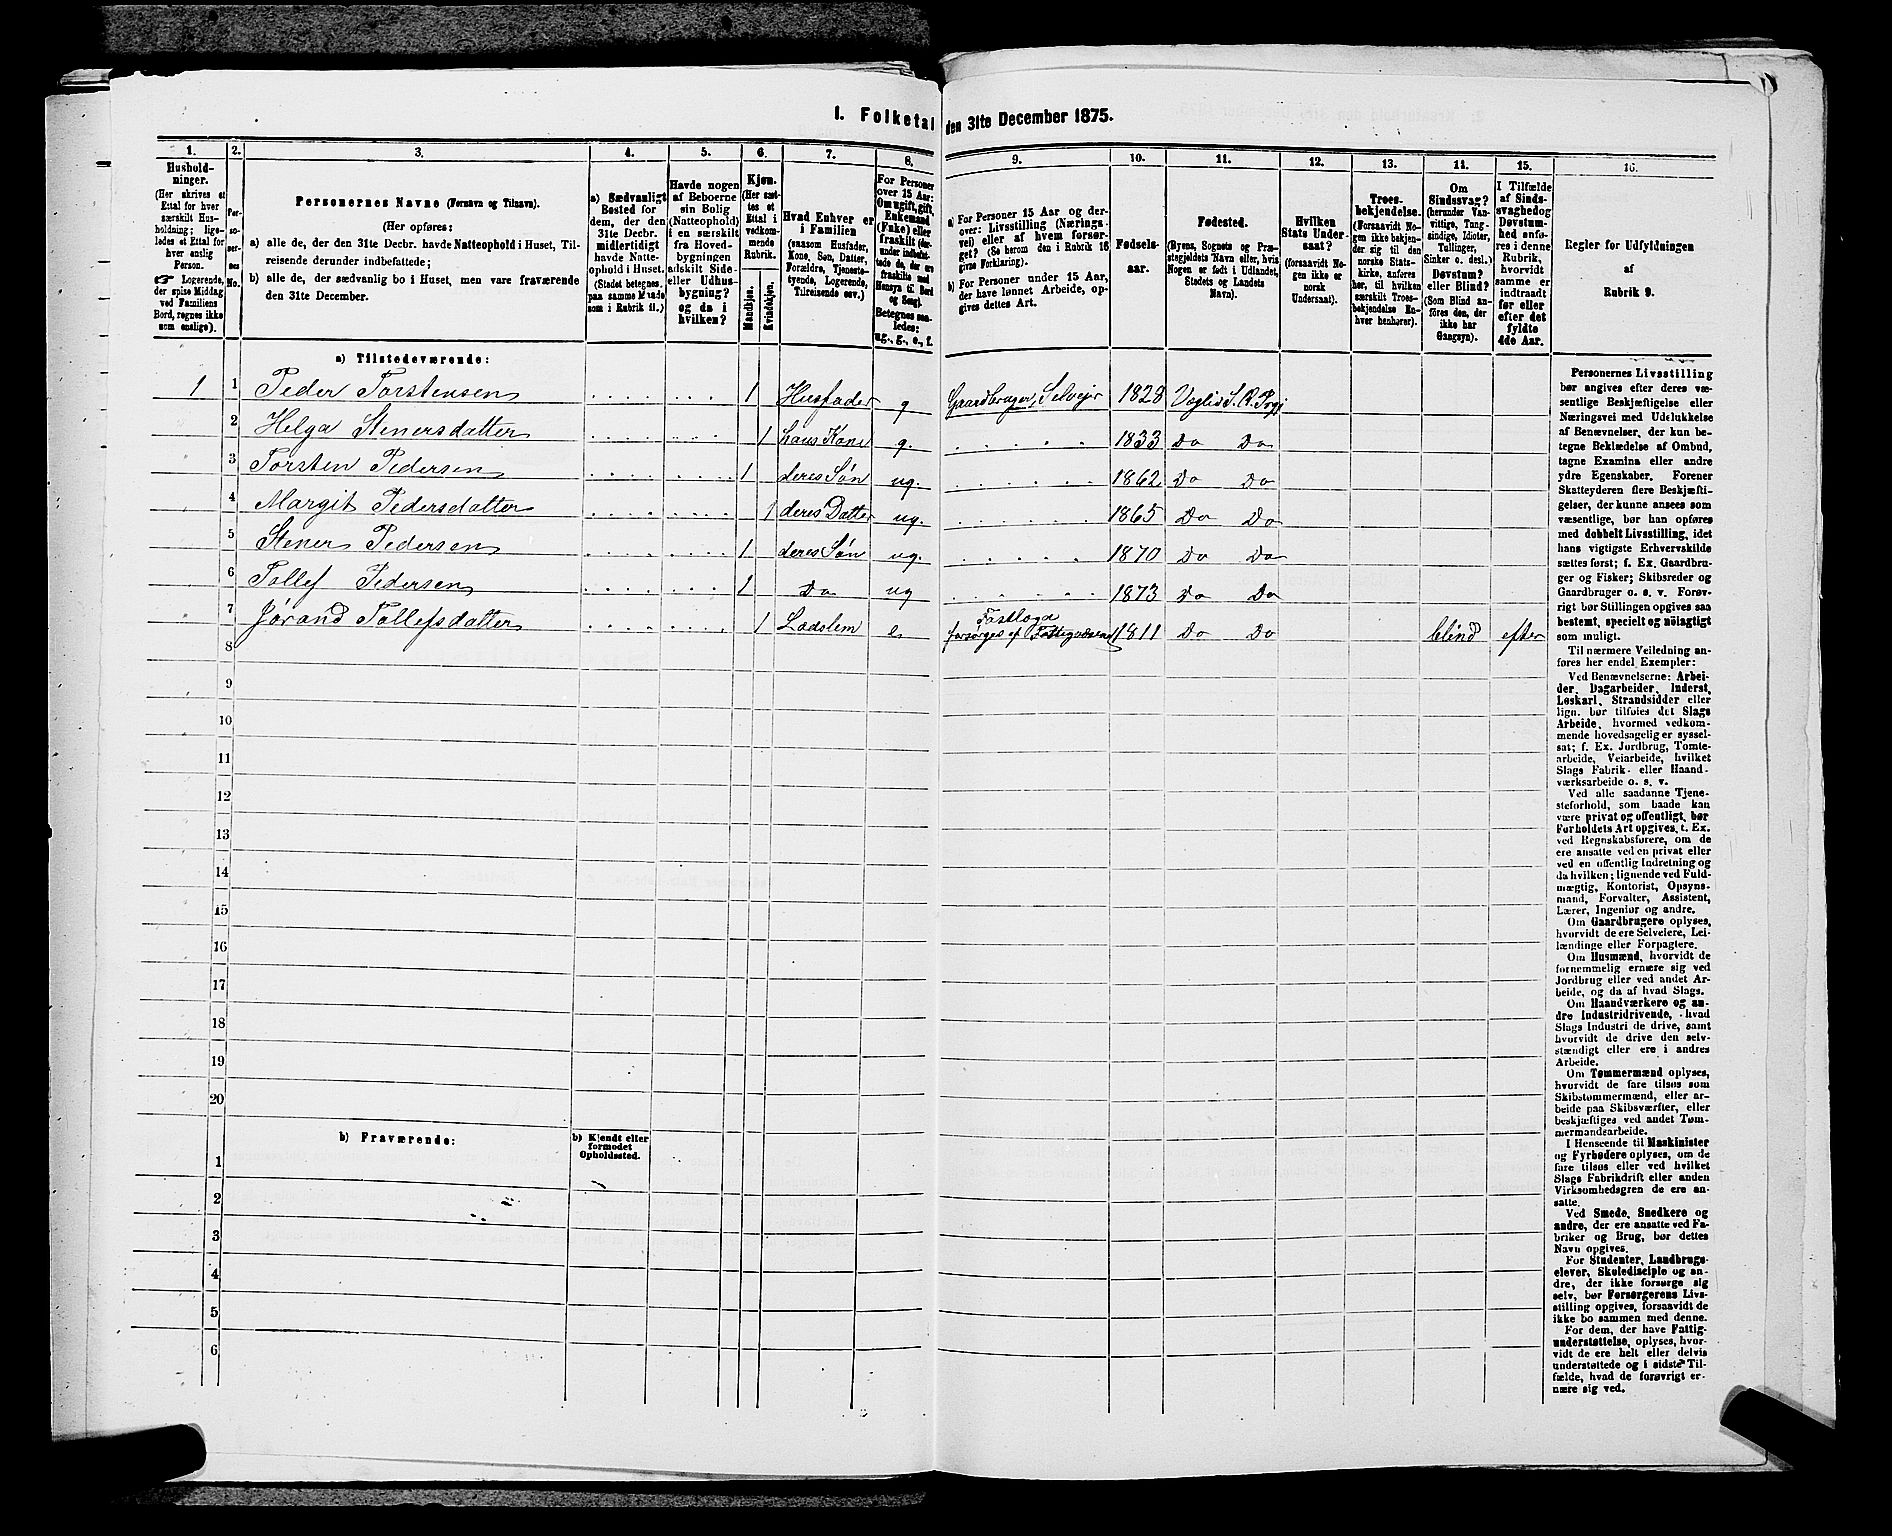 1. Folketal den 31te December 1875.
1. 2. 3. 4. 5. 6. 7. 8. 9. 10. 11. 12. 13. 14. 15. 16.
Hushold-
ninger.
(Her skrives et
Ettal for hver
særskilt Hus-
holdning; lige-
ledes et Ettal for
hver enslig
Person.
☞ Logerende,
der spise Middag
ved Familiens
Bord, regnes ikke
som enslige).
Per-
so-
ner-
nes
No.
Personernes Navne (Fornavn og Tilnavn).
(Her opføres:
a) alle de, der den 31te Decbr. havde Natteophold i Huset, Til-
reisende derunder indbefattede;
b) alle de, der sædvanlig bo i Huset, men vare fraværende
den 31te December.
a) Sædvanligt
Bosted for
dem, der den
31te Decbr.
midlertidigt
havde Natte-
ophold i Huset.
(Stedet betegnes
paa samme Maade
som i Rubrik 11.)
Havde nogen
af Beboerne
sin Bolig
(Natteophold)
i en særskilt
fra Hoved-
bygningen
adskilt Side-
eller Udhus-
bygning?
og da i
hvilken?
Kjøn.
(Her sæt-
tes et
Ettal i
vedkom-
mende
Rubrik.
Mandkjøn.
Kvindekjøn.
Hvad Enhver er
i Familien
(saasom Husfader,
Kone, Søn, Datter,
Forældre, Tjeneste-
tyende, Logerende,
Tilreisende osv.)
For Personer
over 15 Aar:
Om ugift, gift,
Enkemand
(Enke) eller
fraskilt (der-
under indbefat-
tede de, der ere
fraskilte med
Hensyn til Bord
og Seng).
Betegnes saa-
ledes:
ug., g., e., f.
a) For Personer 15 Aar og der-
over: Livsstilling (Nærings-
vei) eller af hvem forsør-
get? (Se herom den i Rubrik 16
givne Forklaring).
b) For Personer under 15 Aar,
der have lønnet Arbeide, op-
gives dettes Art.
Fødsels-
aar.
Fødested.
(Byens, Sognets og Præ-
stegjeldets Navn eller, hvis
Nogen er født i Udlandet,
Stedets og Landets
Navn).
Hvilken
Stats Under-
saat?
(forsaavidt No-
gen ikke er
norsk
Undersaat).
Troes-
bekjendelse.
(Forsaavidt No-
gen ikke bekjen-
der sig til den
norske Stats-
kirke, anføres
her, til hvilken
særskilt Troes-
bekjendelse En-
hver henhører).
Om
Sindssvag?
(herunder Van-
vittige, Tung-
sindige, Idioter,
Tullinger,
Sinker o. desl.)
Døvstum?
eller Blind?
(Som Blind an-
føres den, der
ikke har
Gangsyn).
I Tilfælde
af Sinds-
svaghed og
Døvstum-
hed anfø-
res i denne
Rubrik,
hvorvidt
samme er
indtraadt
før eller
efter det
fyldte
4de Aar.
Regler for Udfyldningen
af
Rubrik 9.
a) Tilstedeværende:
1 1 Peder Torstensen 1 Husfader g Gaardbruger, Selveier 1828 Veglis S. R. Prgj
2 Helga Stenersdatter 1 hans Kone g. 1833 Do Do
3 Torsten Pedersen 1 deres Søn ug. 1862 Do Do
4 Margit Pedersdatter 1 deres Datter ug. 1865 Do Do
5 Stener Pedersen 1 deres Søn ug. 1870 Do Do
6 Tollef Pedersen 1 Do ug 1873 Do Do
7 Jørand Tollefsdatter 1 Ladslem e forsørges af Fattigvæsenet 1811 Do Do blind efter
8
9
10
11
12
13
14
15
16
17
18
19
20
b) Fraværende:
b) Kjendt eller
formodet
Opholdssted.
1
2
3
4
5
6
Personernes Livsstilling
bør angives efter deres væ-
sentlige Beskjæftigelse eller
Næringsvei med Udelukkelse
af Benævnelser, der kun be-
tegne Beklædelse af Ombud,
tagne Examina eller andre
ydre Egenskaber. Forener
Skatteyderen flere Beskjæfti-
gelser, der kunne ansees som
væsentlige, bør han opføres
med dobbelt Livsstilling, idet
hans vigtigste Erhvervskilde
sættes først; f. Ex. Gaardbru-
ger og Fisker; Skibsreder og
Gaardbruger o. s. v. Forøv-
rigt bør Stillingen opgives saa
bestemt, specielt og nøiagtigt
som muligt.
Til nærmere Veiledning an-
føres her endel Exempler:
Ved Benævnelserne: Arbei-
der, Dagarbeider, Inderst,
Løskarl, Strandsidder eller
lign. bør tilføies det Slags
Arbeide, hvormed vedkom-
mende hovedsagelig er syssel-
sat; f. Ex. Jordbrug, Tomte-
arbeide, Veiarbeide, hvilket
Slags Fabrik- eller Haand-
værksarbeide o. s. v.
Ved alle saadanne Tjene-
steforhold, som baade kan
være privat og offentligt, bør
Forholdets Art opgives, t. Ex.
ved Regnskabsførere, om de
ere ansatte ved en privat eller
ved en offentlig Indretning og
da hvilken; lignende ved Fuld-
mægtig, Kontorist, Opsyns-
mand, Forvalter, Assistent,
Lærer, Ingeniør og andre.
Om Gaardbrugere oplyses,
hvorvidt de ere Selveiere, Lei-
lændinge eller Forpagtere.
Om Husmænd, hvorvidt de
fornemmelig ernære sig ved
Jordbrug eller ved andet Ar-
beide, og da af hvad Slags.
Om Haandværkere og an-
dre Industridrivende, hvad
Slags Industri de drive, samt
hvorvidt de drive den selv-
stændigt eller ere i andres
Arbeide.
Om Tømmermænd oplyses,
hvorvidt de fare tilsøs som
Skibstømmermænd, eller ar-
beide paa Skibsværfter, eller
beskjæftiges ved andet Tøm-
mermandsarbeide.
I Henseende til Maskinister
og Fyrbødere oplyses, om de
fare tilsøs eller ved hvilket
Slags Fabrikdrift eller anden
Virksomhedsgren de ere an-
satte.
Ved Smede, Snedkere og
andre, der ere ansatte ved Fa-
briker og Brug, bør dettes
Navn opgives.
For Studenter, Landbrugs-
elever, Skoledisciple og an-
dre, der ikke forsørge sig
selv, bør Forsørgerens Livs-
stilling opgives, forsaavidt de
ikke bo sammen med denne.
For dem, der have Fattig-
understøttelse, oplyses, hvor-
vidt de ere helt eller delvis
understøttede og i sidste Til-
fælde, hvad de forøvrigt er-
nære sig ved.